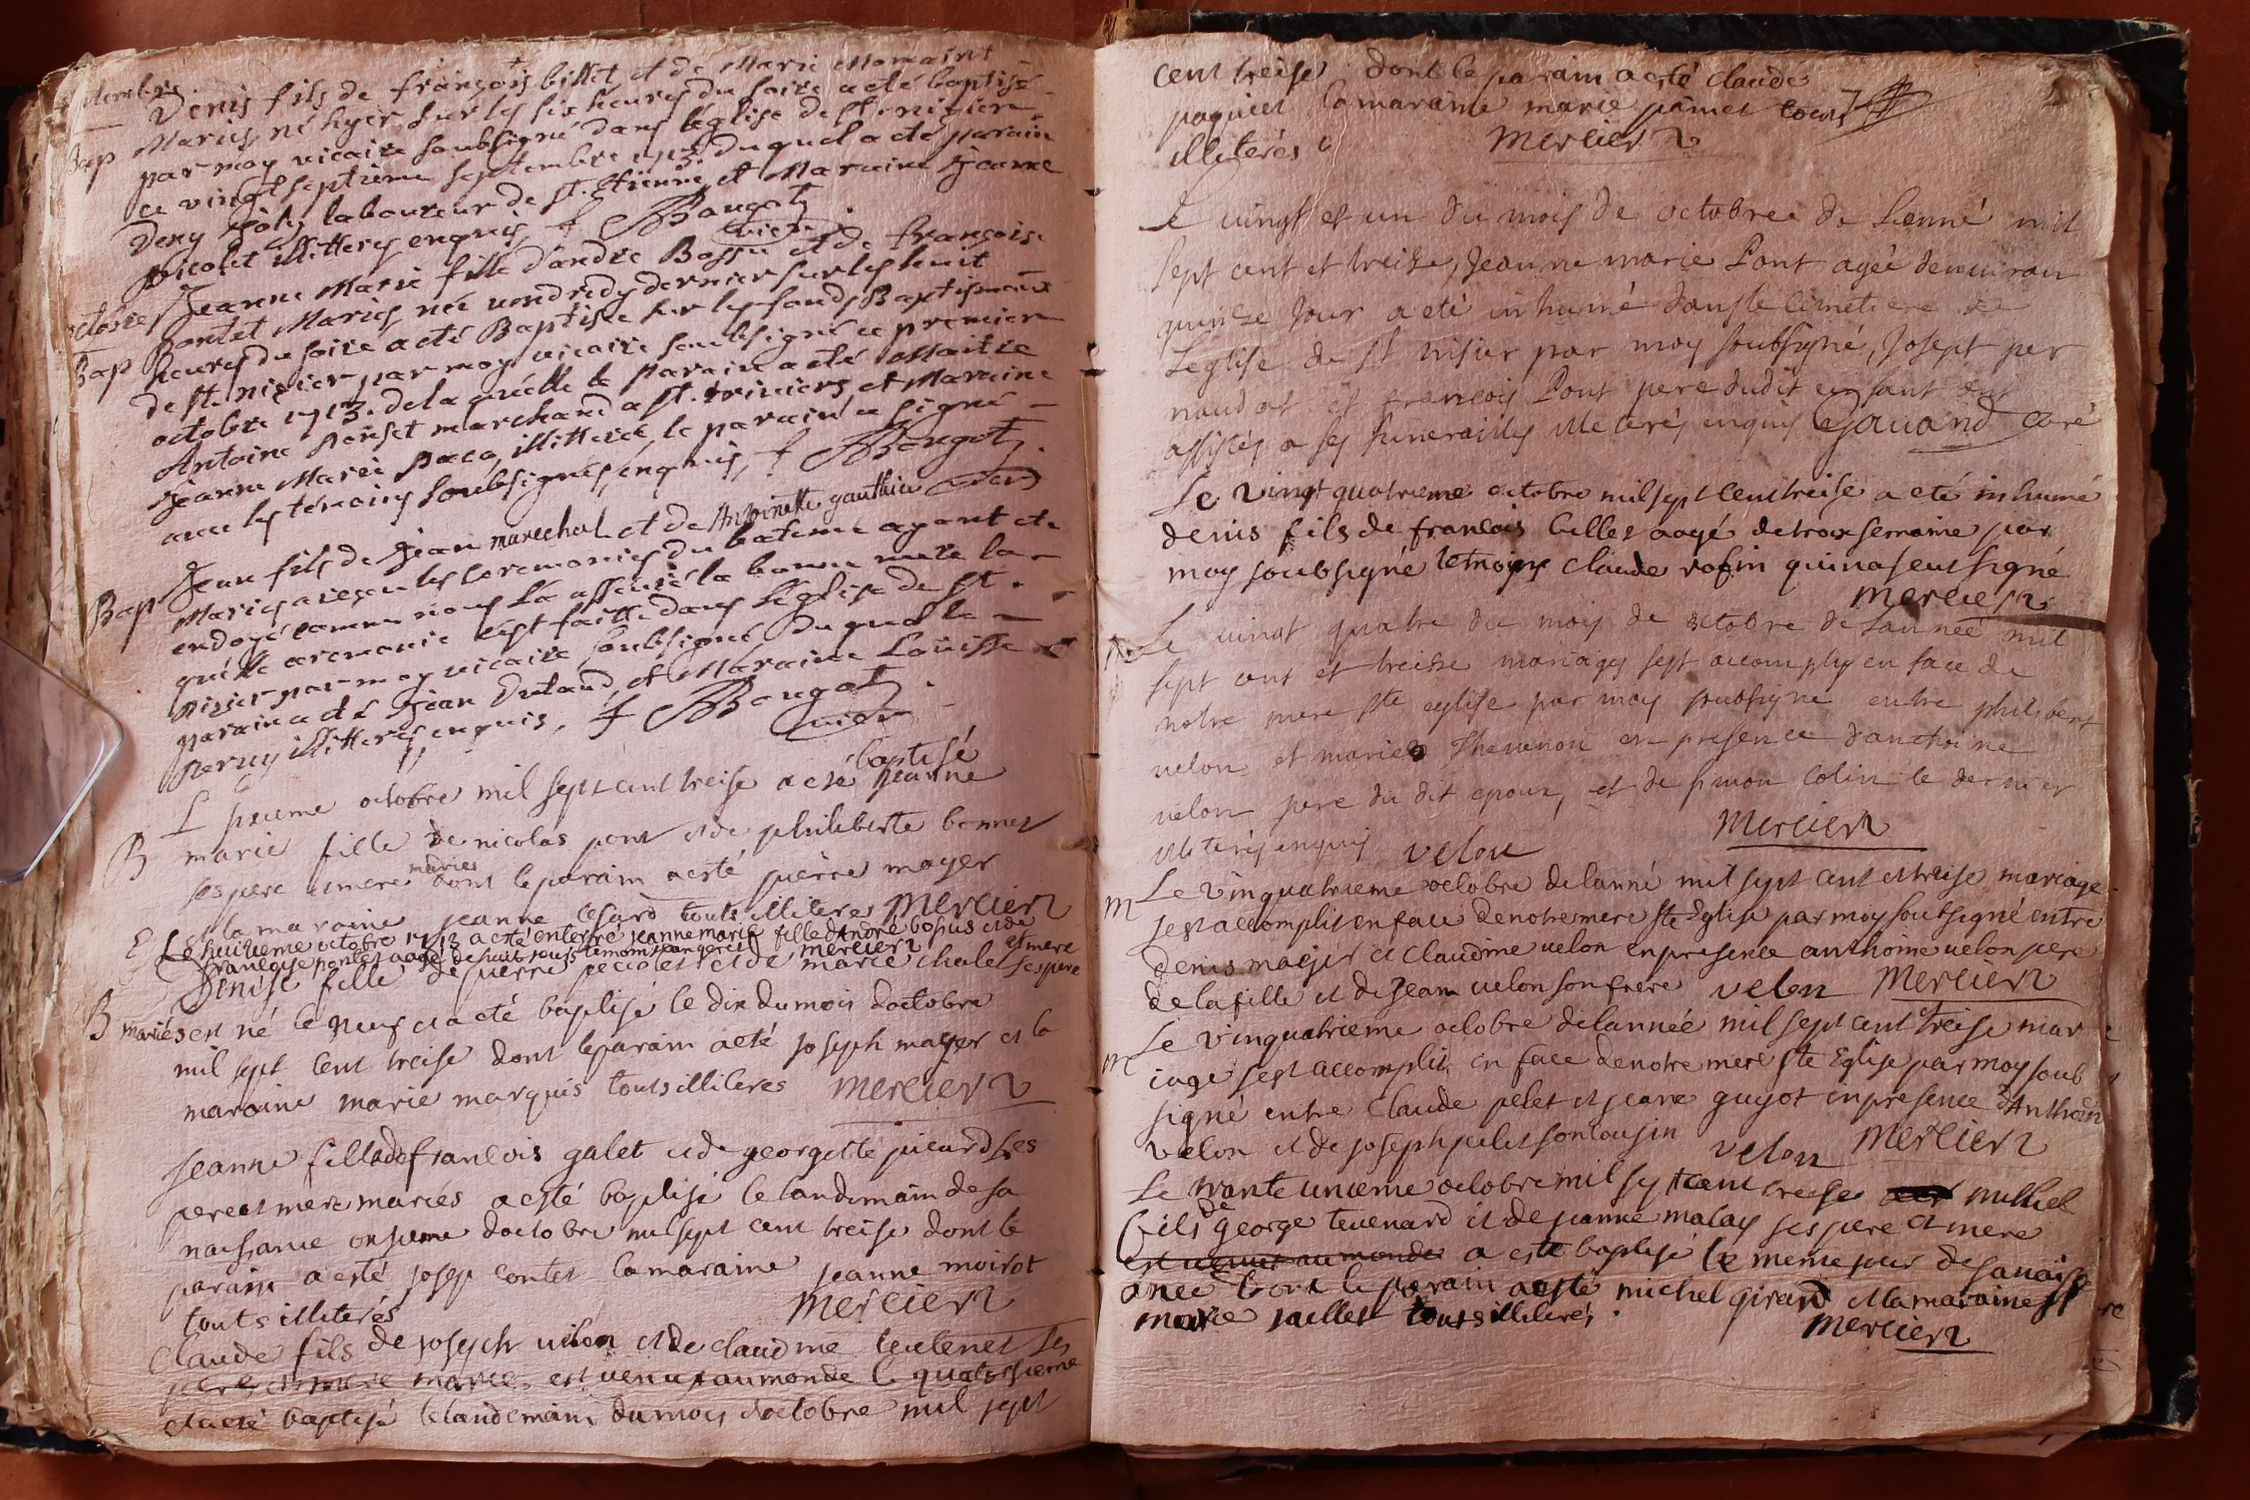 Denis fils de françois billet et de Marie Momaint
Mariés, né hyer sur les six heures du soire a eté baptisé
Bap par moy vicaire soubsigné dans l'église de st. nizier
ce vingt septieme septembre 1713. duquel a eté parain
Deny joly laboureur de st. Etienne et Maraine Jeanne
picolet illitterés enquis, f Bangot
vicr.
octobre Jeanne Marie fille d'andré Bossu et de françoise
Bap pontet Mariés née vendredy dernier sur les huit
heures du soire a eté Baptisée sur les fonds Baptismaux
de st. nizier par moy vicaire soubsigné ce premier
octobre 1713. de laquelle le parain a eté Maitre
Antoine ponset marchand a st. triviers et Maraine
Jeanne Marie paca, illitterée, le parain a signé
avec les témoins soubsignés, enquis, f Bangot
vicr
Jean fils de Jean marechal et de Antoinette gauthier
Bap Mariés a reçeu les ceremonies du bateme ayant ete
endoyé comme nous l'a asseuré la bonne mere la
quelle ceremonie s'est faitte dans l'église de st.
nizier par moy vicaire soubsigné duquel le
parain a eté Jean Dutaud et Maraine Louisse
perruy illitterés, enquis, f Bangot
vicr
baptisé
L sixieme octobre mil sept cent treise a esté jeanne
B marie fille de nicolas pont et de philiberte bonnet
ses pere et mere mariés dont le parain a esté pierre moyer
et la maraine jeanne cesard touts illiteres Mercier
E Le huitieme octobre 1713 a esté enterré jeanne marie fille d'André bopus et de
françoise pontet aagé de huit jours
mercier
Denise fille de pierre pecolet et de marie chalet ses pere et mere
B mariés est né le neuf et a eté baptisé le dix du mois doctobre
mil sept cent treise dont le parain a eté joseph mayer et la
maraine marie marquis touts illiteres mercier
jeanne fille de francois galet et de georgette picard ses
pere et mere mariés a esté baptisé le landemain de sa
naissance onsieme doctobre mil sept cent treise dont le
parain a esté josep contet la maraine jeanne moirot
touts illiterés mercier
Claude fils de joseph velon et de claudine teutenet ses
pere et mere mariés est venu au monde le quatorsieme
et a eté baptisé le landemain du mois doctobre mil sept
cent treise dont le parain a esté claude
paquiet la maraine marie pamet touts
illiterés mercier
Le vingt et un du mois de octobre de Lenné mil
sept cent et treize, Jeanne marie Pont agée denviron
quinze jour a eté inhumé dans le cimetiere de
Leglise de st nisier par moy soubsigné, Josept per
naudot et francois Pont pere dudit enfant ont
assistés a ses funerailles illeterés enquis Gauand curé
Le vingt quatrieme octobre mil sept cent treise a eté inhumé
denis fils de francois billet aagé de trois semaine par
moy soubsigné temoins claude rofin qui na seut signé
mercier
Le vingt quatre du mois de octobre de Lannée mil
sept cent et treisse mariages sest accomply en face de
notre mere ste eglise par moy soubsigne entre philibert
velon et marie Thevenon en presence d'anthoine
velon pere du dit epoux, et de simon Colin le dernier
illeterés enquis velon Mercier
M Le vinquatrieme octobre de lanné mil sept cent et treise mariage
sest accomplit en face de notre mere ste Eglise par moy soubsigné entre
denis mayer et claudine velon en presence anthoine velon pere
de la fille et de jean velon son frere velon Mercier
M Le vinquatrieme octobre de lannée mil sept cent et treise mar
iage sest accomplit en face de notre mere ste Eglise par moy soub
signé entre claude pelet et jeane guyot en presence d'Anthoin
velon et de joseph pelet son cousin velon Mercier
Le trante unieme octobre mil sept cent treise michel
fils de george tevenard et de jeanne malay ses pere et mere
est venut au monde a esté baptisé le meme jour de sa naiss
ance dont le parain a esté michel girard et la maraine
marie paillet touts illiterés.
mercier